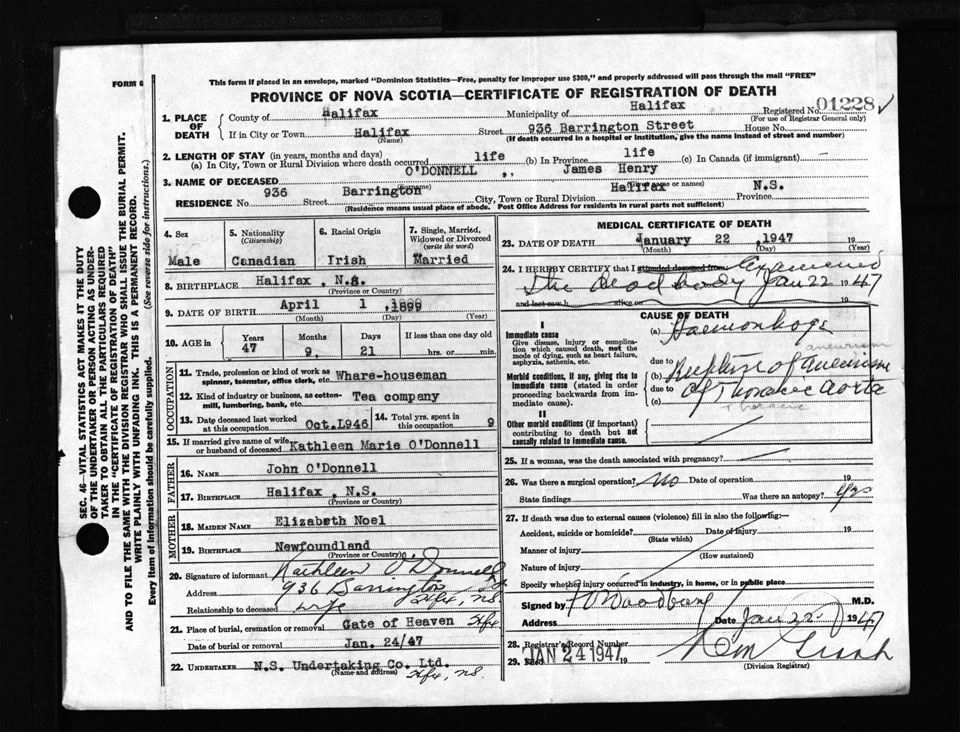 FORM 6
This form if placed in an envelope, marked "Dominion Statistics—Free, penalty for improper use $300," and properly addressed will pass through the mail "FREE"
PROVINCE OF NOVA SCOTIA—CERTIFICATE OF REGISTRATION OF DEATH
1. PLACE OF DEATH
County of Halifax Municipality of Halifax Registered No. 01228
(For use of Registrar General only)
If in City or Town Halifax Street 936 Barrington Street House No.
(Name) (If death occurred in a hospital or institution, give the name instead of street and number)
2. LENGTH OF STAY (in years, months and days)
(a) In City, Town or Rural Division where death occurred life (b) In Province life (c) In Canada (if immigrant)
3. NAME OF DECEASED O'DONNELL , James Henry
(Surname) (Given or names)
RESIDENCE No. 936 Street Barrington City, Town or Rural Division Halifax Province N.S.
(Residence means usual place of abode. Post Office Address for residents in rural parts not sufficient)
4. Sex Male
5. Nationality (Citizenship) Canadian
6. Racial Origin Irish
7. Single, Married, Widowed or Divorced (write the word) Married
8. BIRTHPLACE Halifax , N.S.
(Province or Country)
9. DATE OF BIRTH April 1 ,1899
(Month) (Day) (Year)
10. AGE in Years 47 Months 9 Days 21 If less than one day old hrs. or min.
OCCUPATION
11. Trade, profession or kind of work as spinner, teamster, office clerk, etc. Whare-houseman
12. Kind of industry or business, as cotton-mill, lumbering, bank, etc. Tea company
13. Date deceased last worked at this occupation Oct.L946
14. Total yrs. spent in this occupation 9
15. If married give name of wife or husband of deceased Kathleen Marie O'Donnell
FATHER
16. NAME John O'Donnell
17. BIRTHPLACE Halifax , N.S.
(Province or Country)
MOTHER
18. MAIDEN NAME Elizabeth Noel
19. BIRTHPLACE Newfoundland
(Province or Country)
20. Signature of informant Kathleen O'Donnell
Address 936 Barrington St Hfx, NS
Relationship to deceased wife
21. Place of burial, cremation or removal Gate of Heaven Hfx
Date of burial or removal Jan. 24/47
22. UNDERTAKER N.S. Undertaking Co. Ltd.
(Name and address) Hfx, NS.
MEDICAL CERTIFICATE OF DEATH
23. DATE OF DEATH January 22 ,1947 19
(Month) (Day) (Year)
24. I HEREBY CERTIFY that I attended deceased from: Examined
The dead body Jan 22 1947
and last saw h alive on 19
CAUSE OF DEATH
I
Immediate cause
Give disease, injury or complication which caused death, not the mode of dying, such as heart failure, asphyxia, asthenia, etc.
(a) Haemorrhage
aneurism
Morbid conditions, if any, giving rise to immediate cause (stated in order proceeding backwards from immediate cause).
due to (b) Rupture of aneurism
due to (c) of Thoracic Aorta
Thoracic
II
Other morbid conditions (if important) contributing to death but not causally related to immediate cause.
25. If a woman, was the death associated with pregnancy?
26. Was there a surgical operation? No Date of operation 19
State findings Was there an autopsy? Yes
27. If death was due to external causes (violence) fill in also the following:—
Accident, suicide or homicide? Date of injury 19
(State which)
Manner of injury
(How sustained)
Nature of injury
Specify whether injury occurred in industry, in home, or in public place
Signed by M.D.
Address Date Jan 22 1947
28. Registrar's Record Number
29. Filed JAN 24 1947 19
(Division Registrar)
SEC. 46—VITAL STATISTICS ACT MAKES IT THE DUTY
OF THE UNDERTAKER OR PERSON ACTING AS UNDER-
TAKER TO OBTAIN ALL THE PARTICULARS REQUIRED
IN THE "CERTIFICATE OF REGISTRATION OF DEATH"
AND TO FILE THE SAME WITH THE DIVISION REGISTRAR WHO SHALL ISSUE THE BURIAL PERMIT.
WRITE PLAINLY WITH UNFADING INK. THIS IS A PERMANENT RECORD.
Every item of information should be carefully supplied. (See reverse side for instructions.)